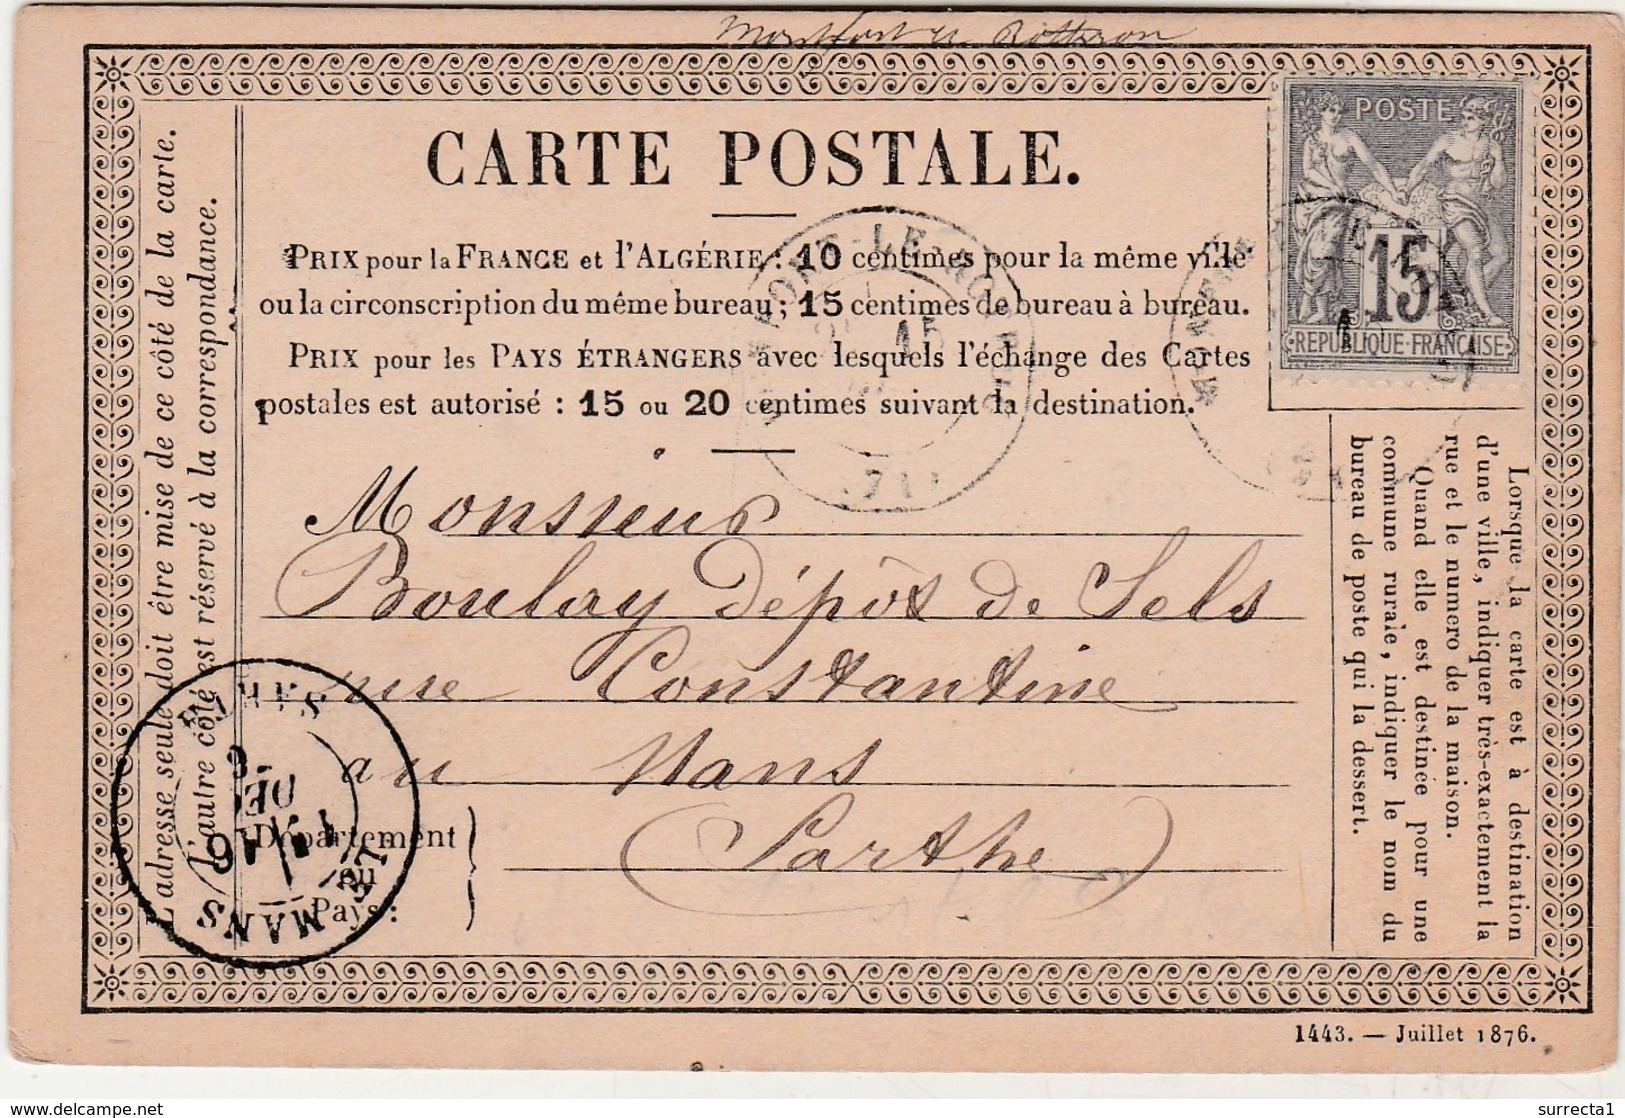 Montfort le Rotrou
CARTE POSTALE.
POSTE
15
REPUBLIQUE FRANCAISE
PRIX pour la FRANCE et l'ALGÉRIE : 10 centimes pour la même ville
ou la circonscription du même bureau ; 15 centimes de bureau à bureau.
PRIX pour les PAYS ÉTRANGERS avec lesquels l'échange des Cartes
postales est autorisé : 15 ou 20 centimes suivant la destination.
L'adresse seule doit être mise de ce côté de la carte.
L'autre côté est réservé à la correspondance.
FORT-LE-RO
15
(71)
Monsieur
Boulay dépôt de Sels
rue Constantine
au Mans
(Sarthe)
Département
ou
Pays :
LE MANS
SARTHE
16
DEC
Lorsque la carte est à destination
d'une ville, indiquer très-exactement la
rue et le numero de la maison.
Quand elle est destinée pour une
commune rurale, indiquer le nom du
bureau de poste qui la dessert.
1443. — Juillet 1876.
delcampe.net
surrecta1